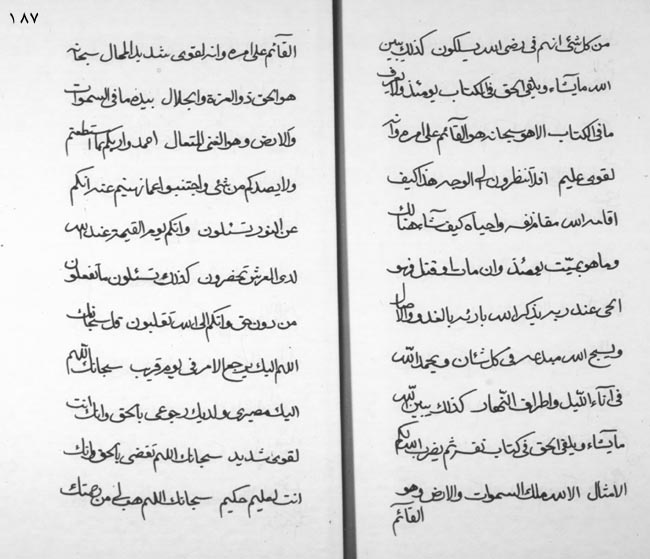 ١٨٧
من كل شئ انهم فى رضى الله يسلكون كذلك يبين
الله مايشاء ويلقى الحق فى الكتاب يومئذ ولا يعرف
ما فى الكتاب الا هو سبحانه هو القآئم على امره وانه
لقوى عليم افلا تنظرون الى الوجه هذا كيف
اقامه الله مقام نفسه واحياه كيف شآء هنالك
وما هو بميت يومئذ وان مات او قتل فهو
الحى عند ربه يذكر الله بارئه بالغدو والاصال
ويسبح الله مبدعه فى كل شان ويحمد الله
فى انآء الليل واطراف النهار كذلك يبين الله
مايشاء ويلقى الحق فى كتاب نفسه ثم يضرب الله لكم
الامثال الا لله ملك السموات والارض وهو
القآئم
القآئم على امره وانه لقوى شديد المحال سبحانه
هو الحق ذو العزة والجلال بيده ما فى السموات
والارض وهو الغنى المتعال احمدوا ربكم ما استطعتم
ولا يصدكم من شئ واجتنبوا عما نهيتم عنه انكم
عن النور تسئلون وانكم يوم القيمة عند الله
لدى العرش تحضرون كذلك تسئلون ما تفعلون
من دون حق وانكم الى الله تقلبون قل سبحانك
اللهم اليك يرجع الامر فى يوم قريب سبحانك اللهم
اليك مصيرى ولديك رجوعى بالحق وانك انت
لقوى شديد سبحانك اللهم تقضى بالحق وانك
انت لعليم حكيم سبحانك اللهم هب لى من رحمتك